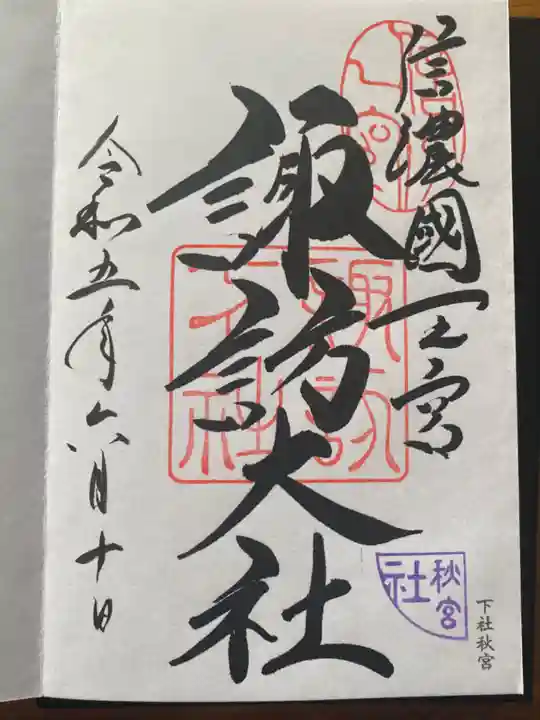 信濃國一之宮
諏訪大社
令和五年六月十日
諏訪大社
秋宮
社
下社秋宮